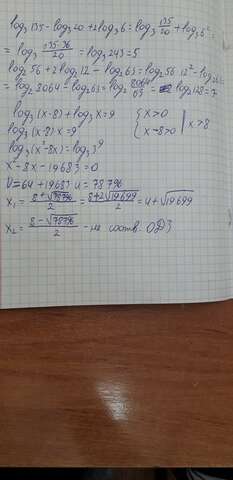 log₃135-log₃20+2log₃6=log₃ 135/20 +log₃6²=
= log₃ 135·36/20 = log₃243=5
log₂56+2log₂12-log₂63=log₂56·12²-log₂63=
=log₂8064-log₂63=log₂ 8064/63 = log₂128=7
log₃(x-8)+log₃x=9 {x>0 x-8>0 | x>8
log₃(x-8)x=9
log₃(x²-8x)=log₃3⁹
x²-8x-19683=0
D=64+19683·4=78796
x₁=(8+√78796)/2=(8+2√19699)/2=4+√19699
x₂=(8-√78796)/2 - не соотв. ОДЗ